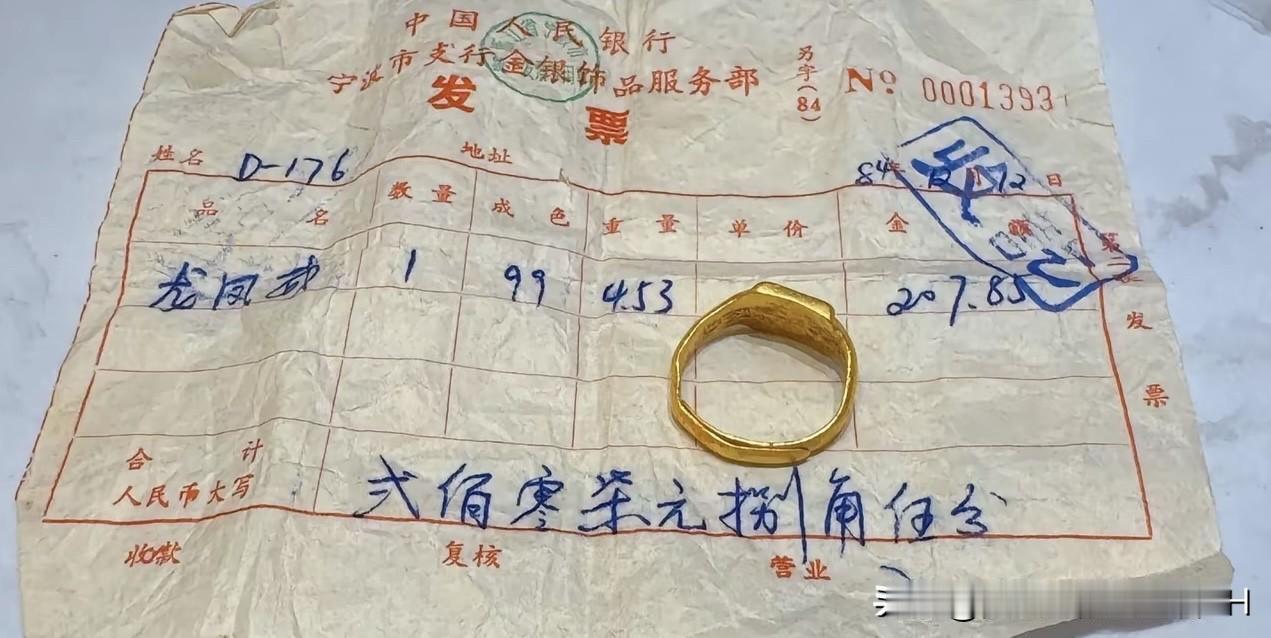 中国人民银行
宁波市支行金银饰品服务部
发票
另字(84)
Nº 0001393
姓名 D-176 地址 84年12月12日
品名 数量 成色 重量 单价 金额
龙凤戒 1 99 4.53 207.85
合计
人民币大写 弍佰零柒元捌角伍分
收款 复核 营业
发票